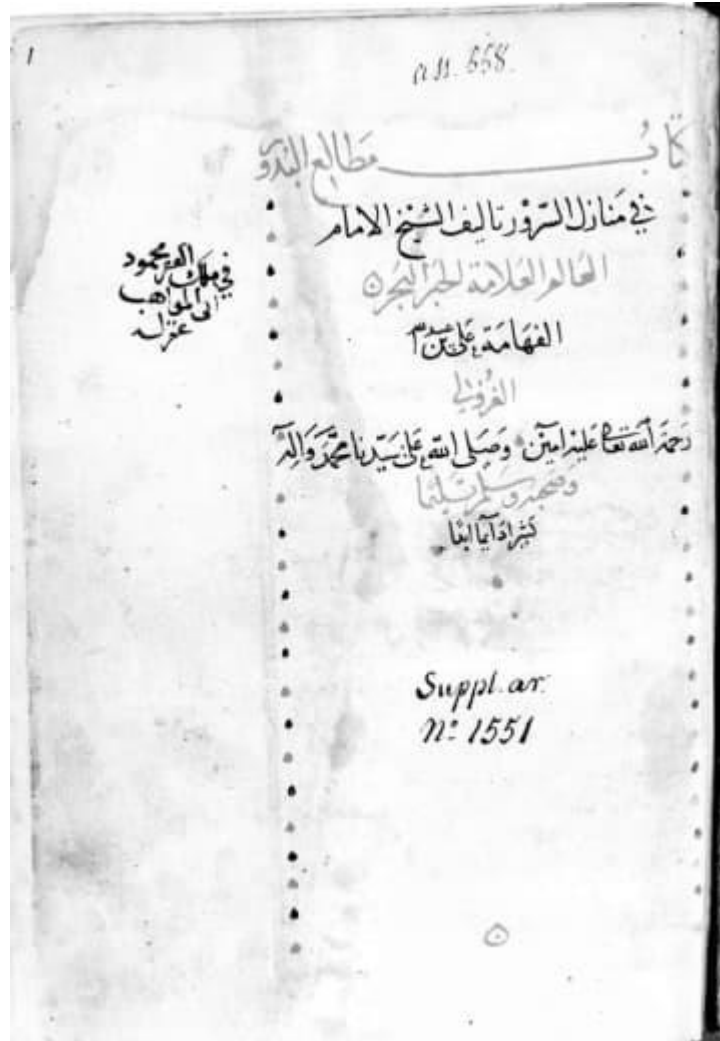 1
a 11. 558.
كتاب مطالع البدور
في منازل السرور تاليف الشيخ الامام
العالم العلامة الحبر البحر
الفهامة علي بن
الغزولي
رحمه الله تعالى عليه امين وصلى الله على سيدنا محمد واله
وصحبه وسلم تسليما
كثيرا دايما ابدا
في ملك الفقير محمود
ابي المواهب
Suppl. ar.
Nº 1551